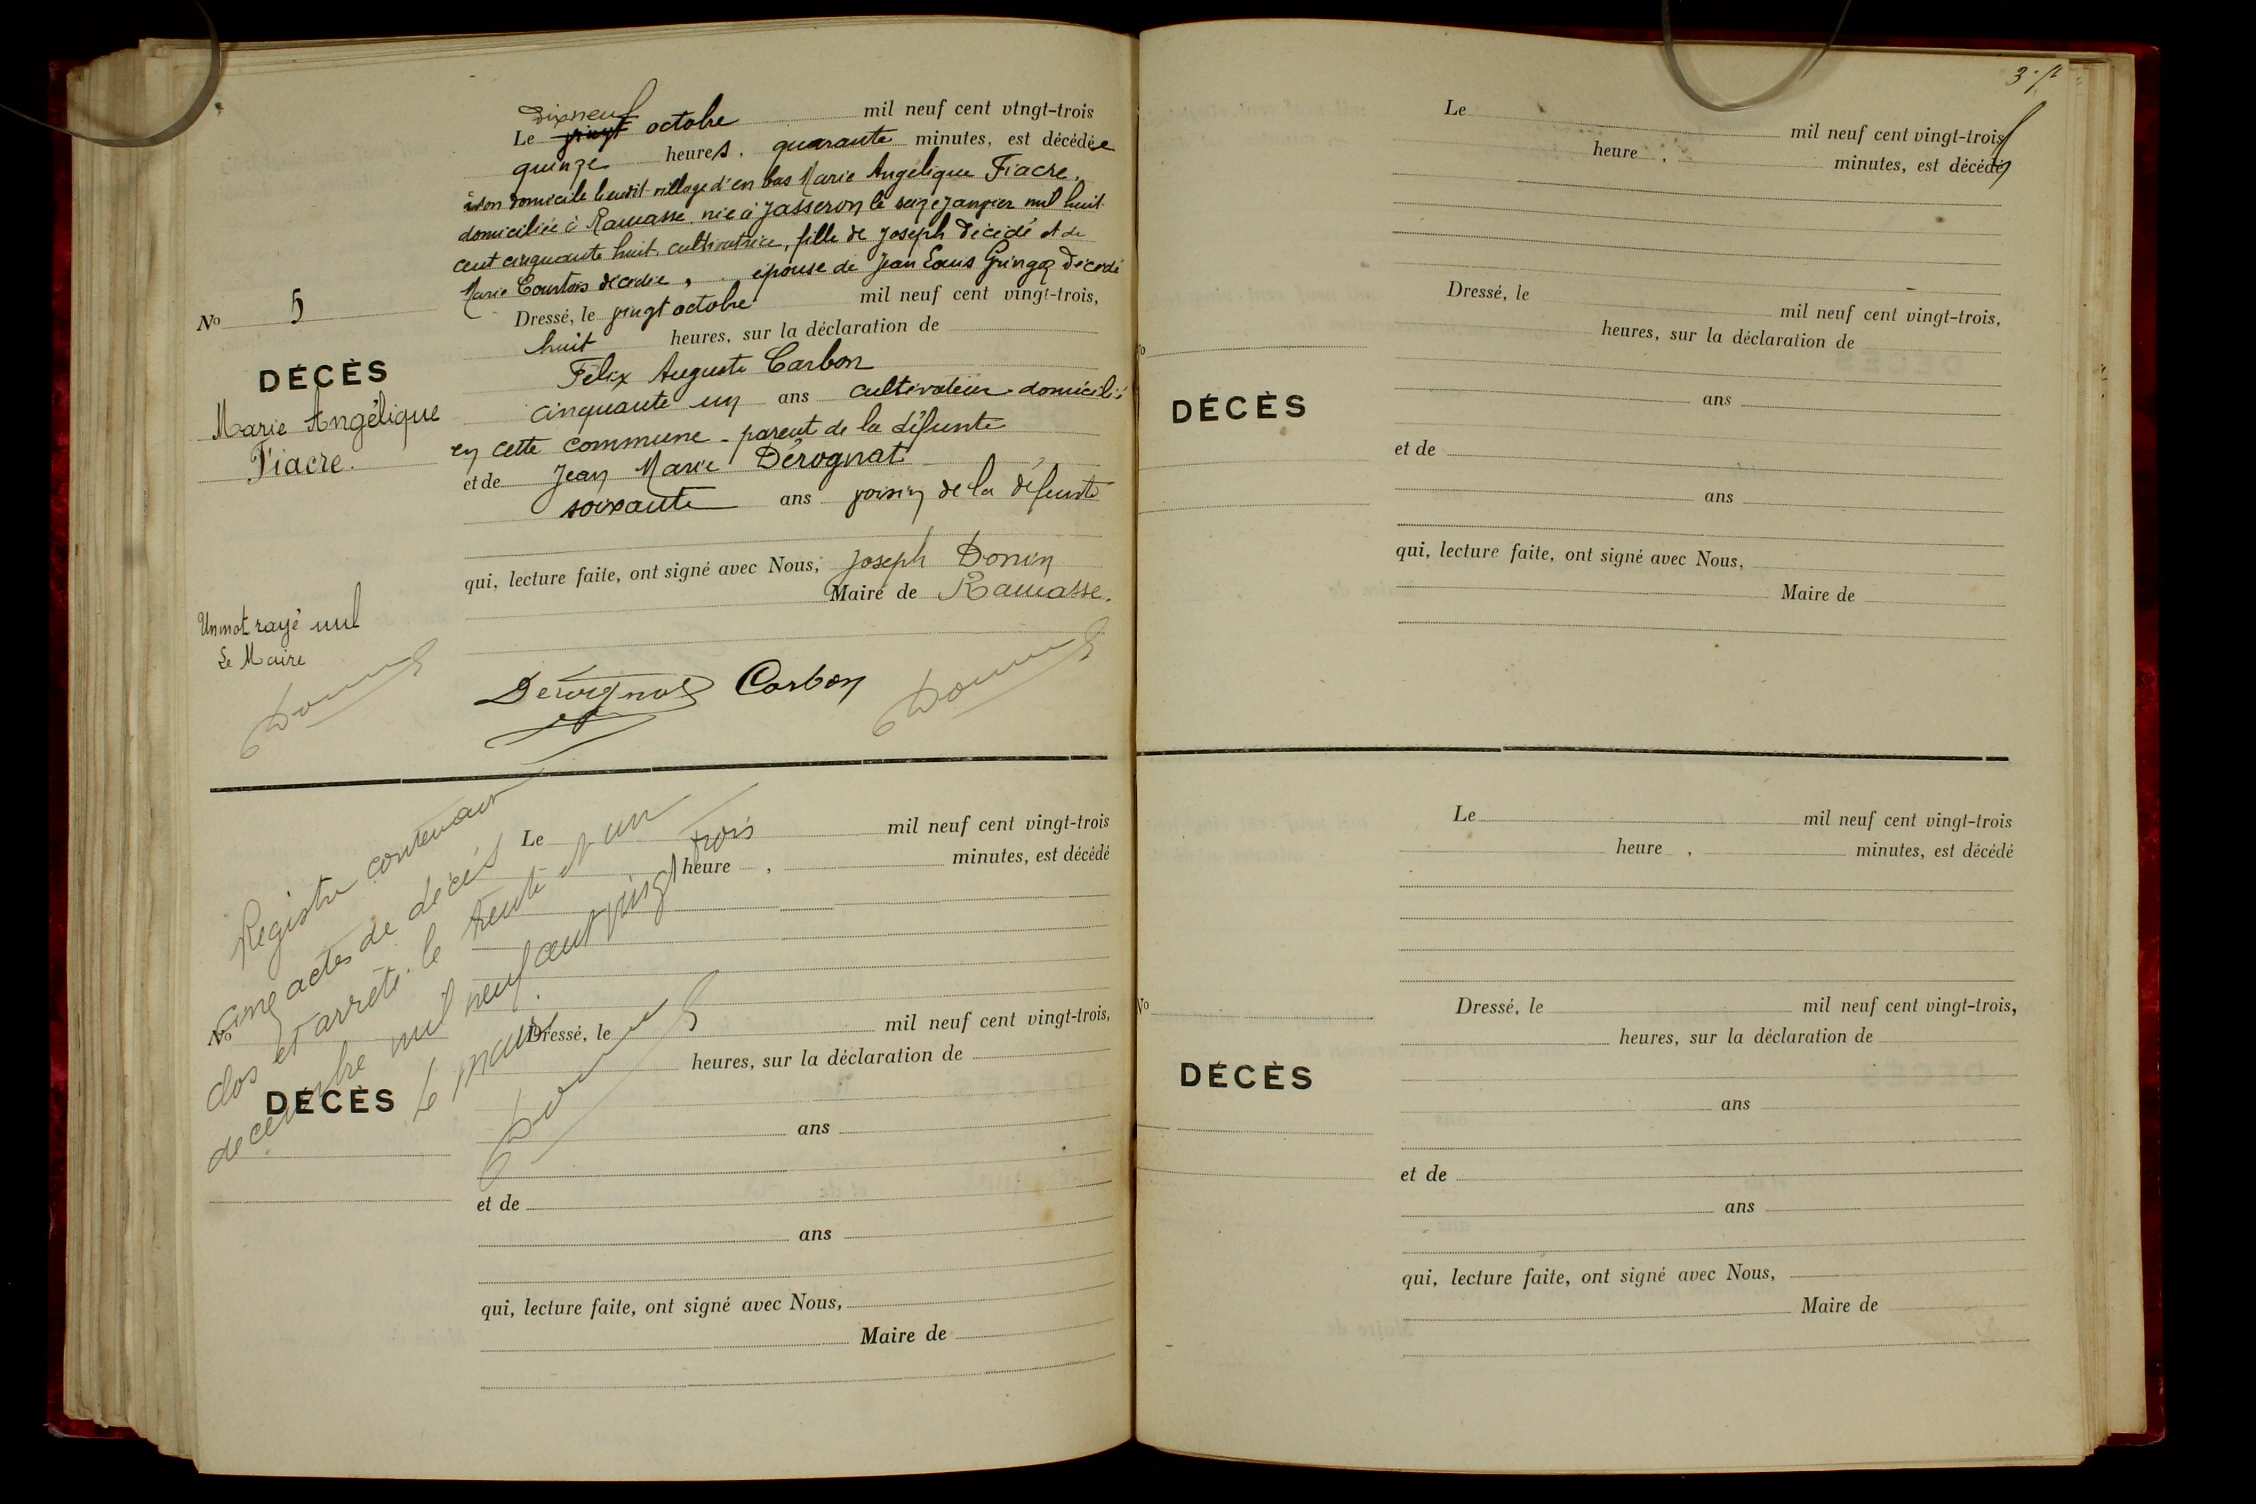 Dixneuf
Le vingt octobre mil neuf cent vingt-trois
quinze heures, quarante minutes, est décédée
à son domicile lieudit village d'en bas Marie Angélique Fiacre,
domiciliée à Ramasse née à Jasseron le seize janvier mil huit
cent cinquante huit, cultivatrice, fille de Joseph décédé et de
Marie Courtois décédée, épouse de Jean Louis Gringoz décédé
Dressé, le vingt octobre mil neuf cent vingt-trois,
huit heures, sur la déclaration de
Félix Auguste Carbon
cinquante un ans cultivateur domicilié
en cette commune - parent de la défunte
et de Jean Marie Dérognat,
soixante ans voisin de la défunte
qui, lecture faite, ont signé avec Nous, Joseph Donin
Maire de Ramasse.
Derognat Carbon Donin
No 5
DÉCÈS
Marie Angélique
Fiacre.
Un mot rayé nul
Le Maire
Donin
Registre contenant
cinq actes de décès
clos et arrêté le trente et un
décembre mil neuf cent vingt trois
Le maire.
Donin
Le mil neuf cent vingt-trois
heure , minutes, est décédé
No
DÉCÈS
Dressé, le mil neuf cent vingt-trois,
heures, sur la déclaration de
ans
et de
ans
qui, lecture faite, ont signé avec Nous,
Maire de
Le mil neuf cent vingt-trois
heure , minutes, est décédé
DÉCÈS
Dressé, le mil neuf cent vingt-trois,
heures, sur la déclaration de
ans
et de
ans
qui, lecture faite, ont signé avec Nous,
Maire de
Le mil neuf cent vingt-trois
heure , minutes, est décédé
No
DÉCÈS
Dressé, le mil neuf cent vingt-trois,
heures, sur la déclaration de
ans
et de
ans
qui, lecture faite, ont signé avec Nous,
Maire de